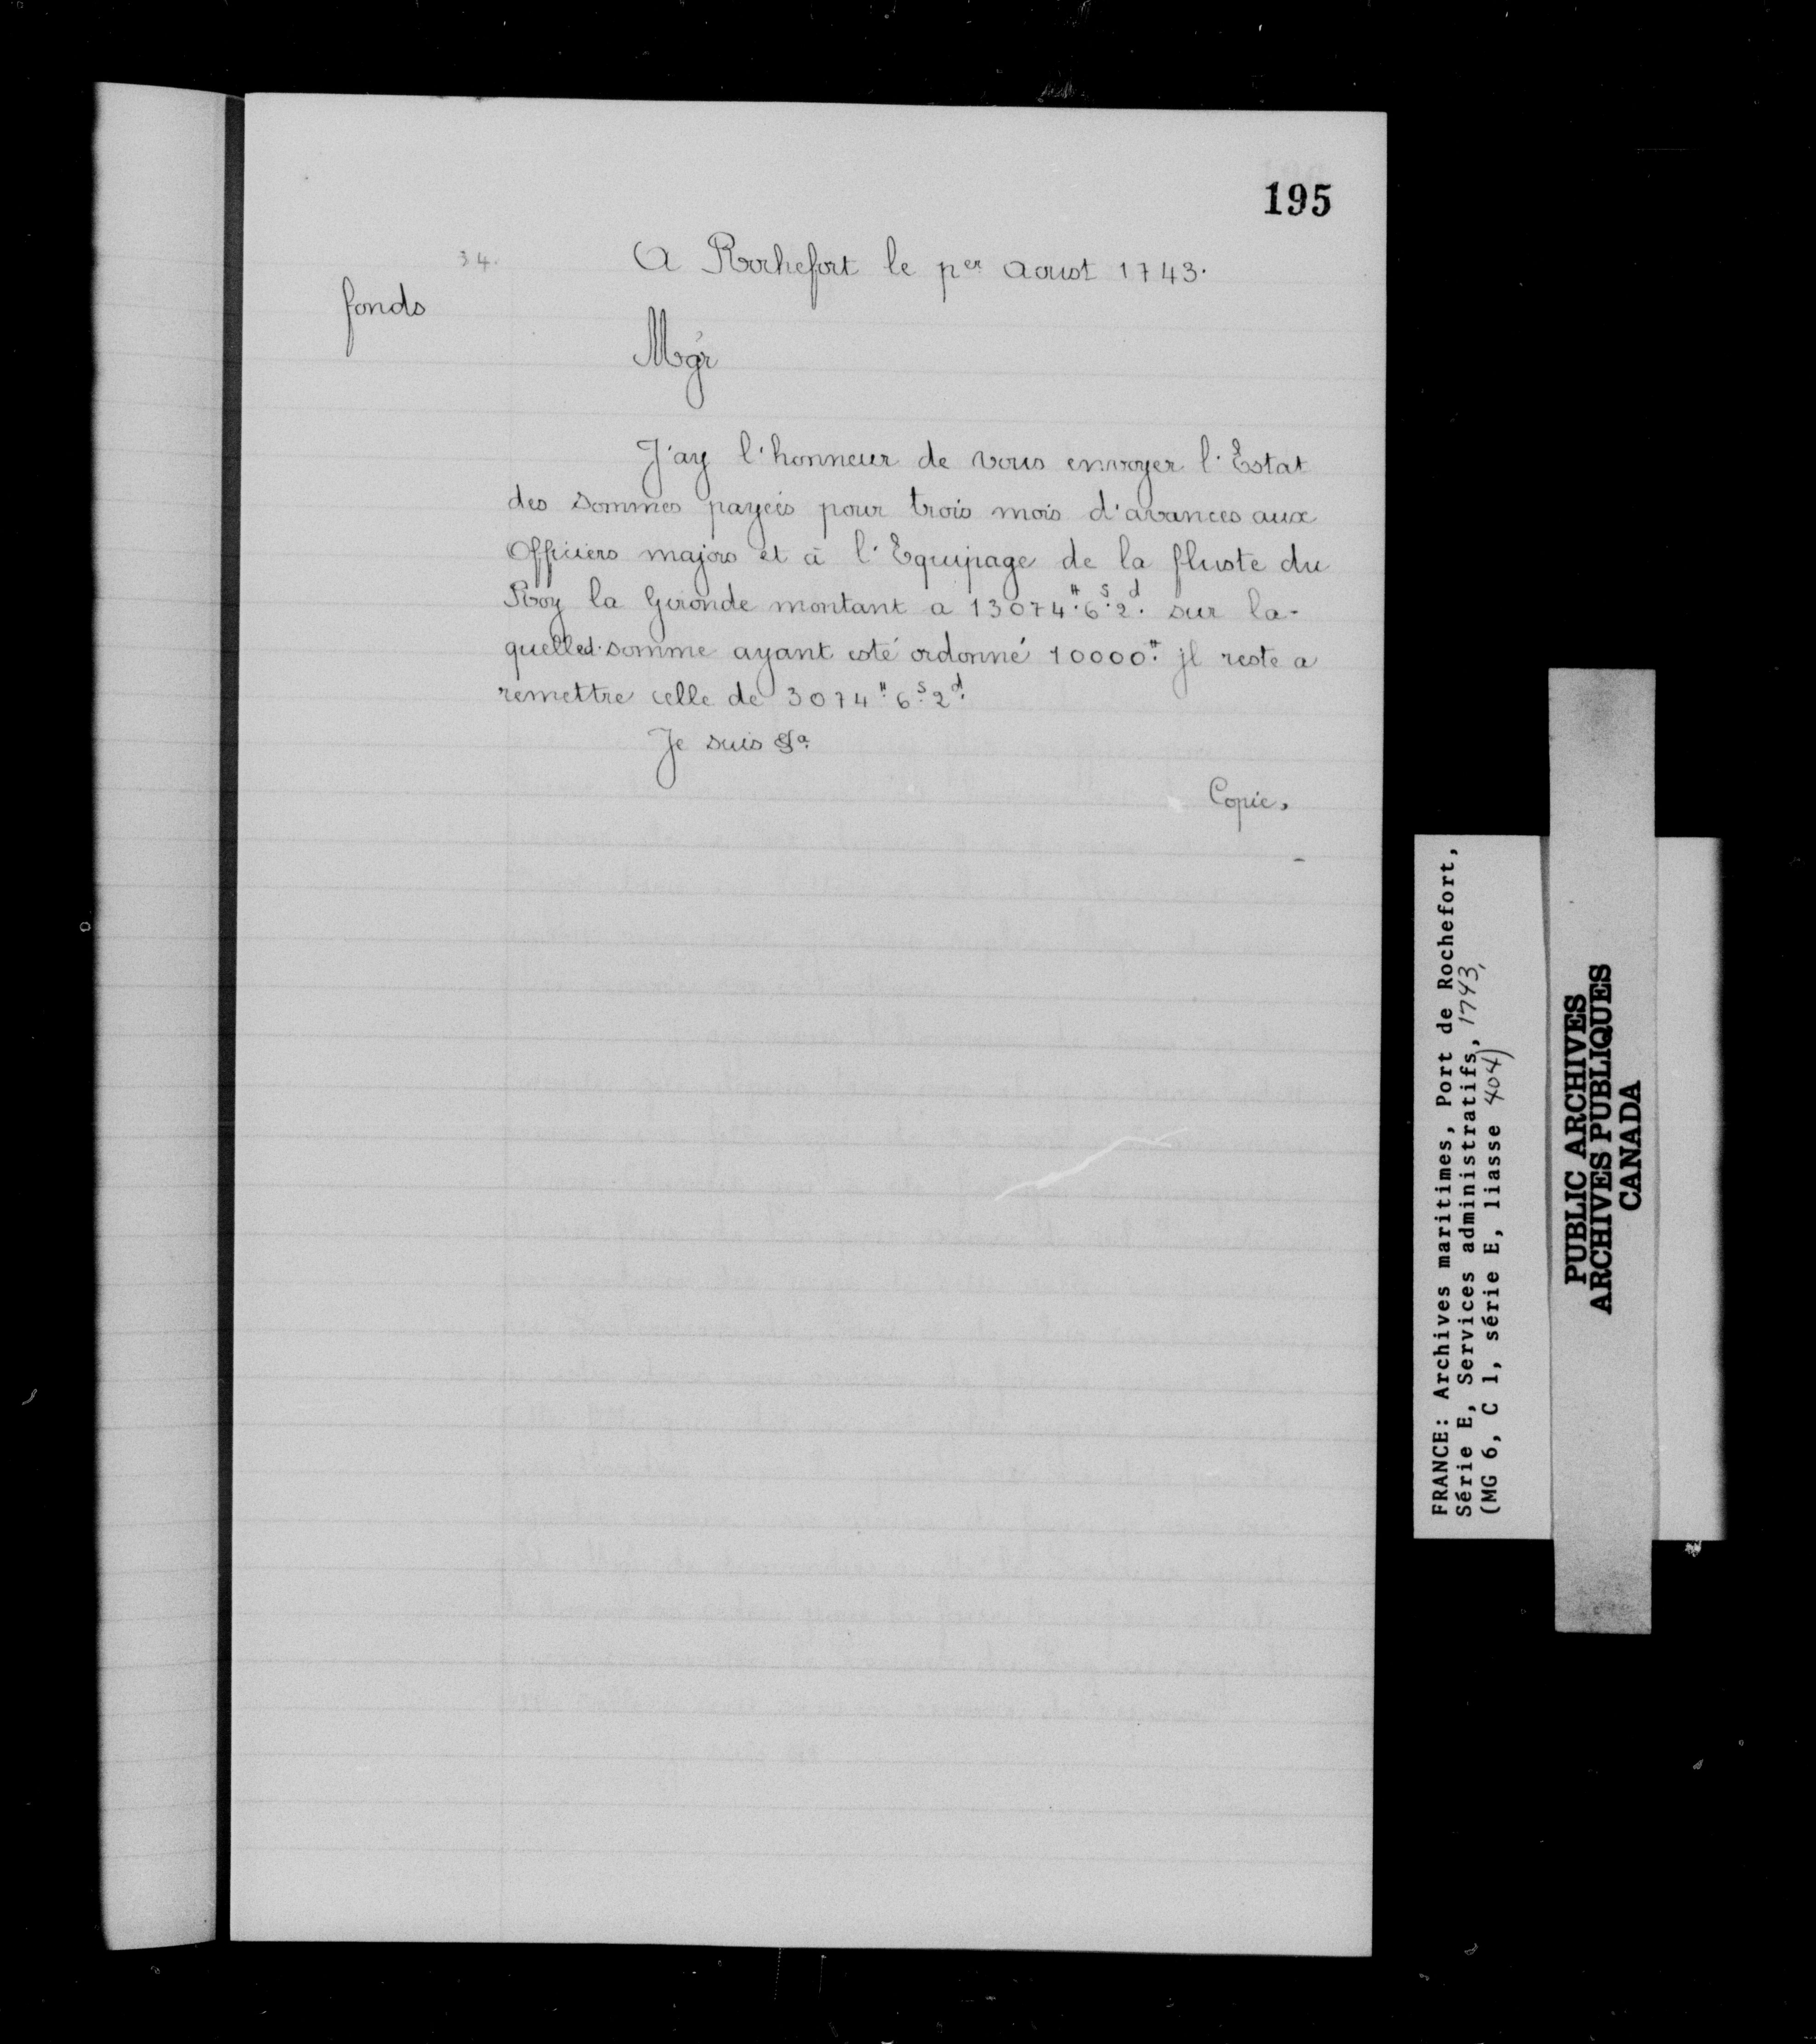 195
34.
A Rochefort le p.er aoust 1743.
fonds
Mgr
J'ay l'honneur de vous envoyer l'Estat
des sommes payées pour trois mois d'avances aux
Officiers majors et à l'Equipage de la fluste du
Roy la Gironde montant a 13074.# 6.s 2.d sur la-
quelle somme ayant esté ordonné 10000.# jl reste a
remettre celle de 3074.# 6.s 2.d
Je suis &a
Copie.
FRANCE: Archives maritimes, Port de Rochefort,
Série E, Services administratifs, 1743,
(MG 6, C 1, série E, liasse 404)
PUBLIC ARCHIVES
ARCHIVES PUBLIQUES
CANADA